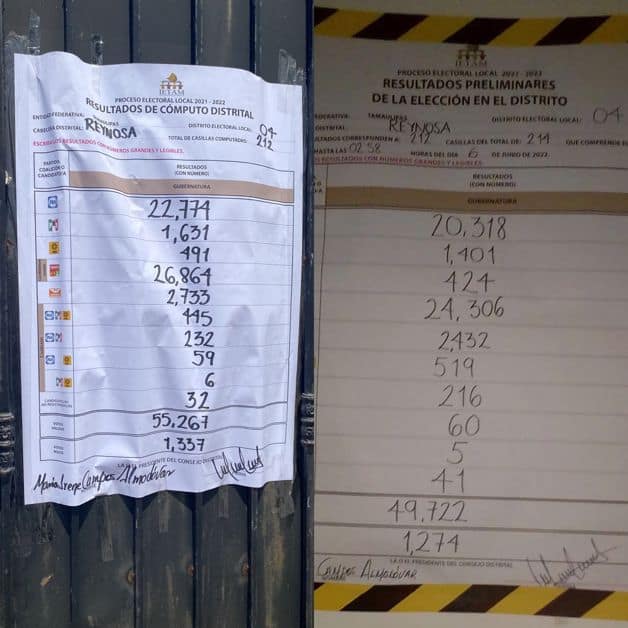 IETAM
PROCESO ELECTORAL LOCAL 2021 - 2022
RESULTADOS DE CÓMPUTO DISTRITAL
ENTIDAD FEDERATIVA: TAMAULIPAS
DISTRITO ELECTORAL LOCAL: 04
CABECERA DISTRITAL: REYNOSA
TOTAL DE CASILLAS COMPUTADAS: 212
RESULTADOS CON NÚMEROS GRANDES Y LEGIBLES.
PARTIDO,
COALICIÓN O
CANDIDATO/A
RESULTADOS
(CON NÚMERO)
GUBERNATURA
22,774
1,631
491
26,864
2,733
445
232
59
6
32
55,267
1,337
LA O EL PRESIDENTE DEL CONSEJO DISTRITAL
María Irene Campos Almodóvar
IETAM
PROCESO ELECTORAL LOCAL 2021 - 2022
RESULTADOS PRELIMINARES
DE LA ELECCIÓN EN EL DISTRITO
FEDERATIVA: TAMAULIPAS
DISTRITO ELECTORAL LOCAL: 04
DISTRITAL: REYNOSA
CORRESPONDEN A: 212 CASILLAS DEL TOTAL DE: 214 QUE COMPRENDE
HASTA LAS 02:58 HORAS DEL DÍA 6 DE JUNIO DE 2022.
RESULTADOS CON NÚMEROS GRANDES Y LEGIBLES.
RESULTADOS
(CON NÚMERO)
GUBERNATURA
20,318
1,401
424
24,306
2,432
519
216
60
5
41
49,722
1,274
LA O EL PRESIDENTE DEL CONSEJO DISTRITAL
CAMPOS ALMODÓVAR